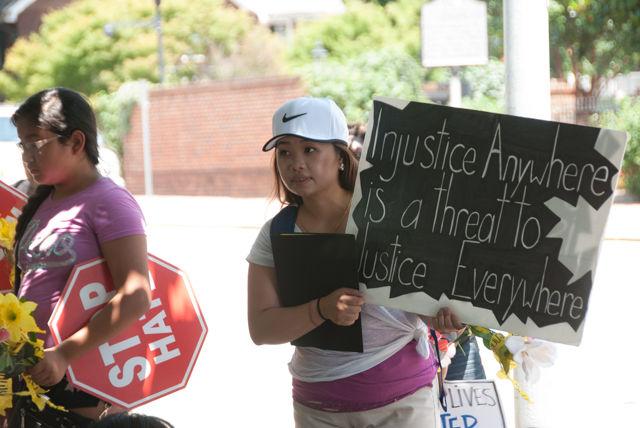 Injustice Anywhere
is a threat to
Justice Everywhere
STOP
HATE
LIVES